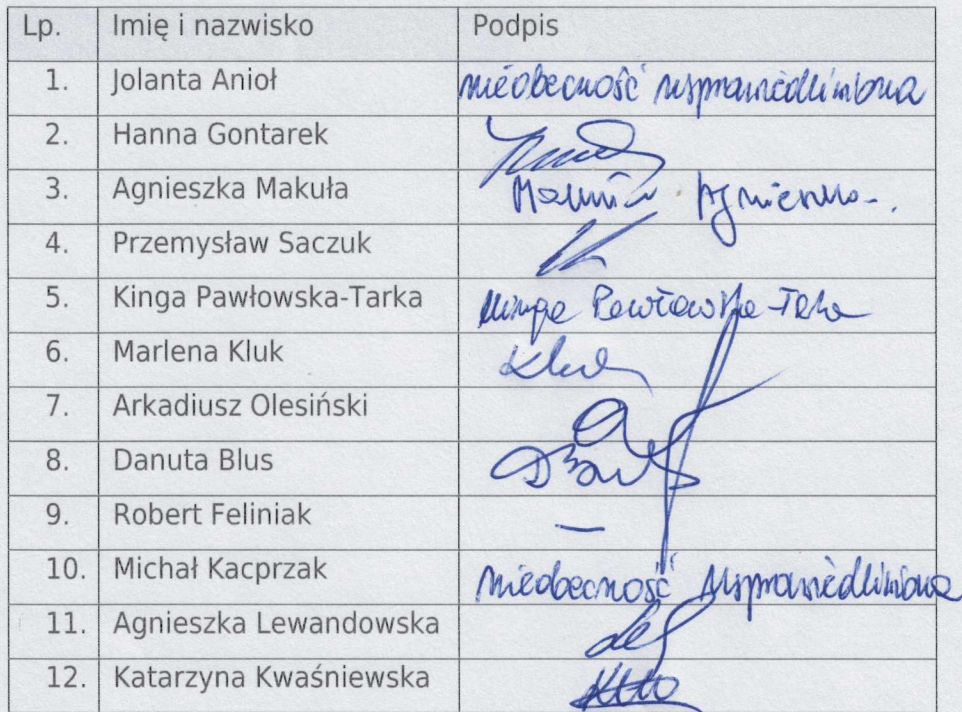 Lp. Imię i nazwisko Podpis
1. Jolanta Anioł nieobecność usprawiedliwiona
2. Hanna Gontarek
3. Agnieszka Makuła Agnieszka
4. Przemysław Saczuk
5. Kinga Pawłowska-Tarka Kinga Pawłowska-Tarka
6. Marlena Kluk Kluk
7. Arkadiusz Olesiński
8. Danuta Blus
9. Robert Feliniak —
10. Michał Kacprzak nieobecność usprawiedliwiona
11. Agnieszka Lewandowska
12. Katarzyna Kwaśniewska